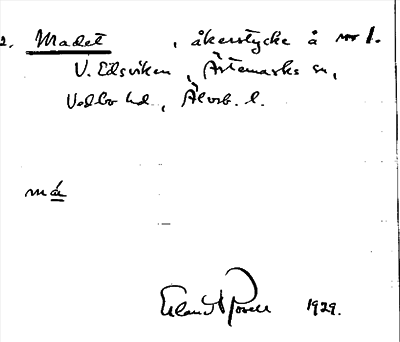 2. Madet , åkerstycke å nr 1.
V. Edsviken, Ärtemarks sn,
Vedbo hd, Älvsb. l.
má
Erland Rosell 1929.